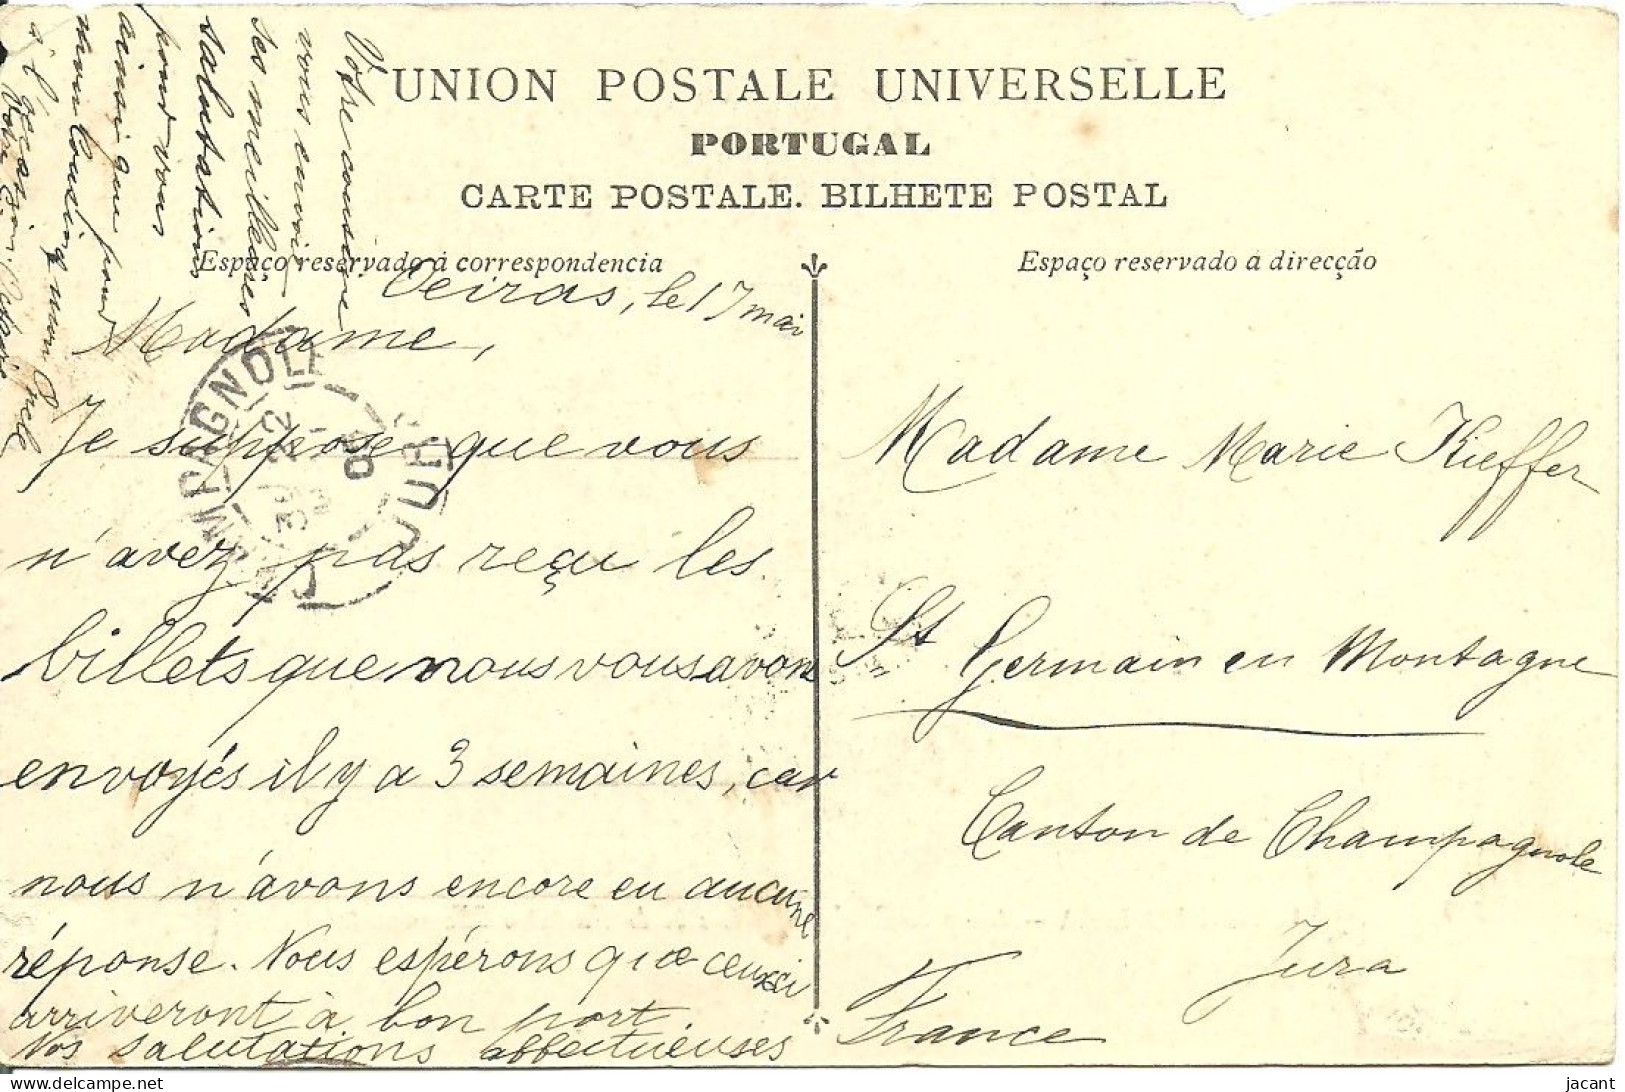 UNION POSTALE UNIVERSELLE
PORTUGAL
CARTE POSTALE. BILHETE POSTAL
Espaço reservado á correspondencia
Espaço reservado á direcção
Oeiras, le 17 mai
Madame,
Je suppose que vous
n'avez pas reçu les
billets que nous vous avons
envoyés il y a 3 semaines, car
nous n'avons encore eu aucune
réponse. Nous espérons que ceux-ci
arriveront à bon port.
Nos salutations affectueuses
Votre cousine
vous envoie
ses meilleures
salutations
pour vous
ainsi que pour
mon cousin
Madame Marie Kieffer
St Germain en Montagne
Canton de Champagnole
Jura
France
CHAMPAGNOLE
JURA
22
jacant